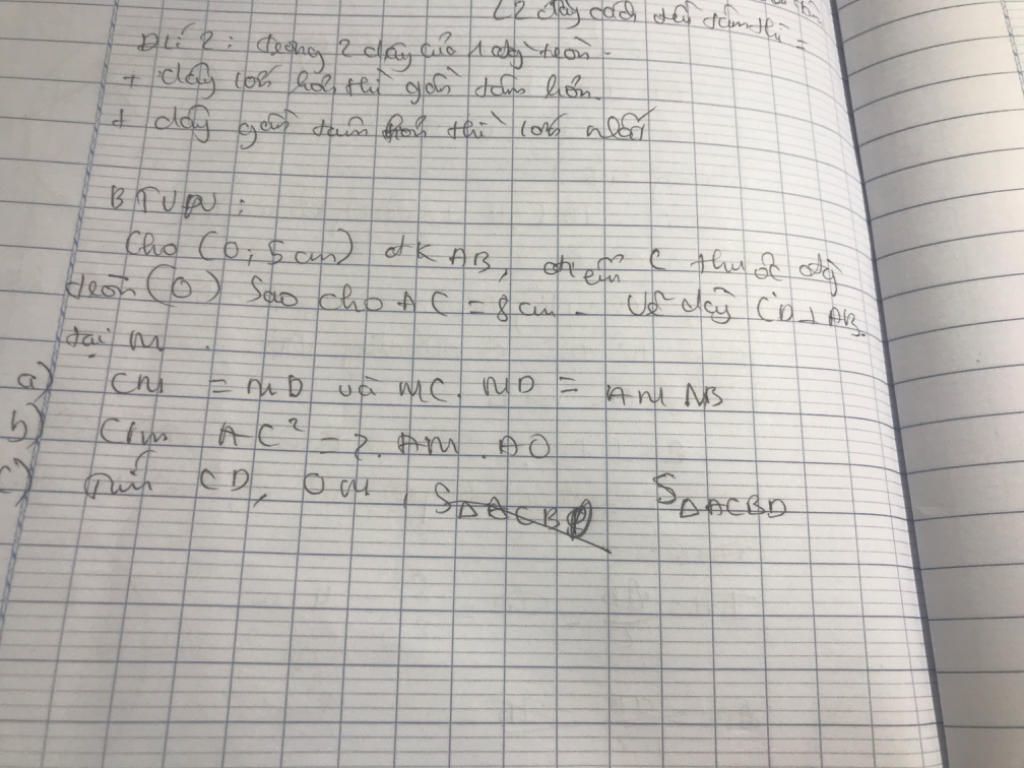 2 dây cách đều tâm thì =
Đlí 2: trong 2 dây của 1 đg tròn.
+ dây lớn hơn thì gần tâm hơn.
+ dây gần tâm hơn thì lớn
BTVN:
Cho (O; 5cm) đk AB, điểm C thuộc đg
tròn (O) sao cho AC = 8cm. Vẽ dây CD ⊥ AB
tại M.
a) CM = MD và MC. MD = AM MB
b) Cm AC² = 2. AM. AO
c) Tính CD, OM, S∆ACBD